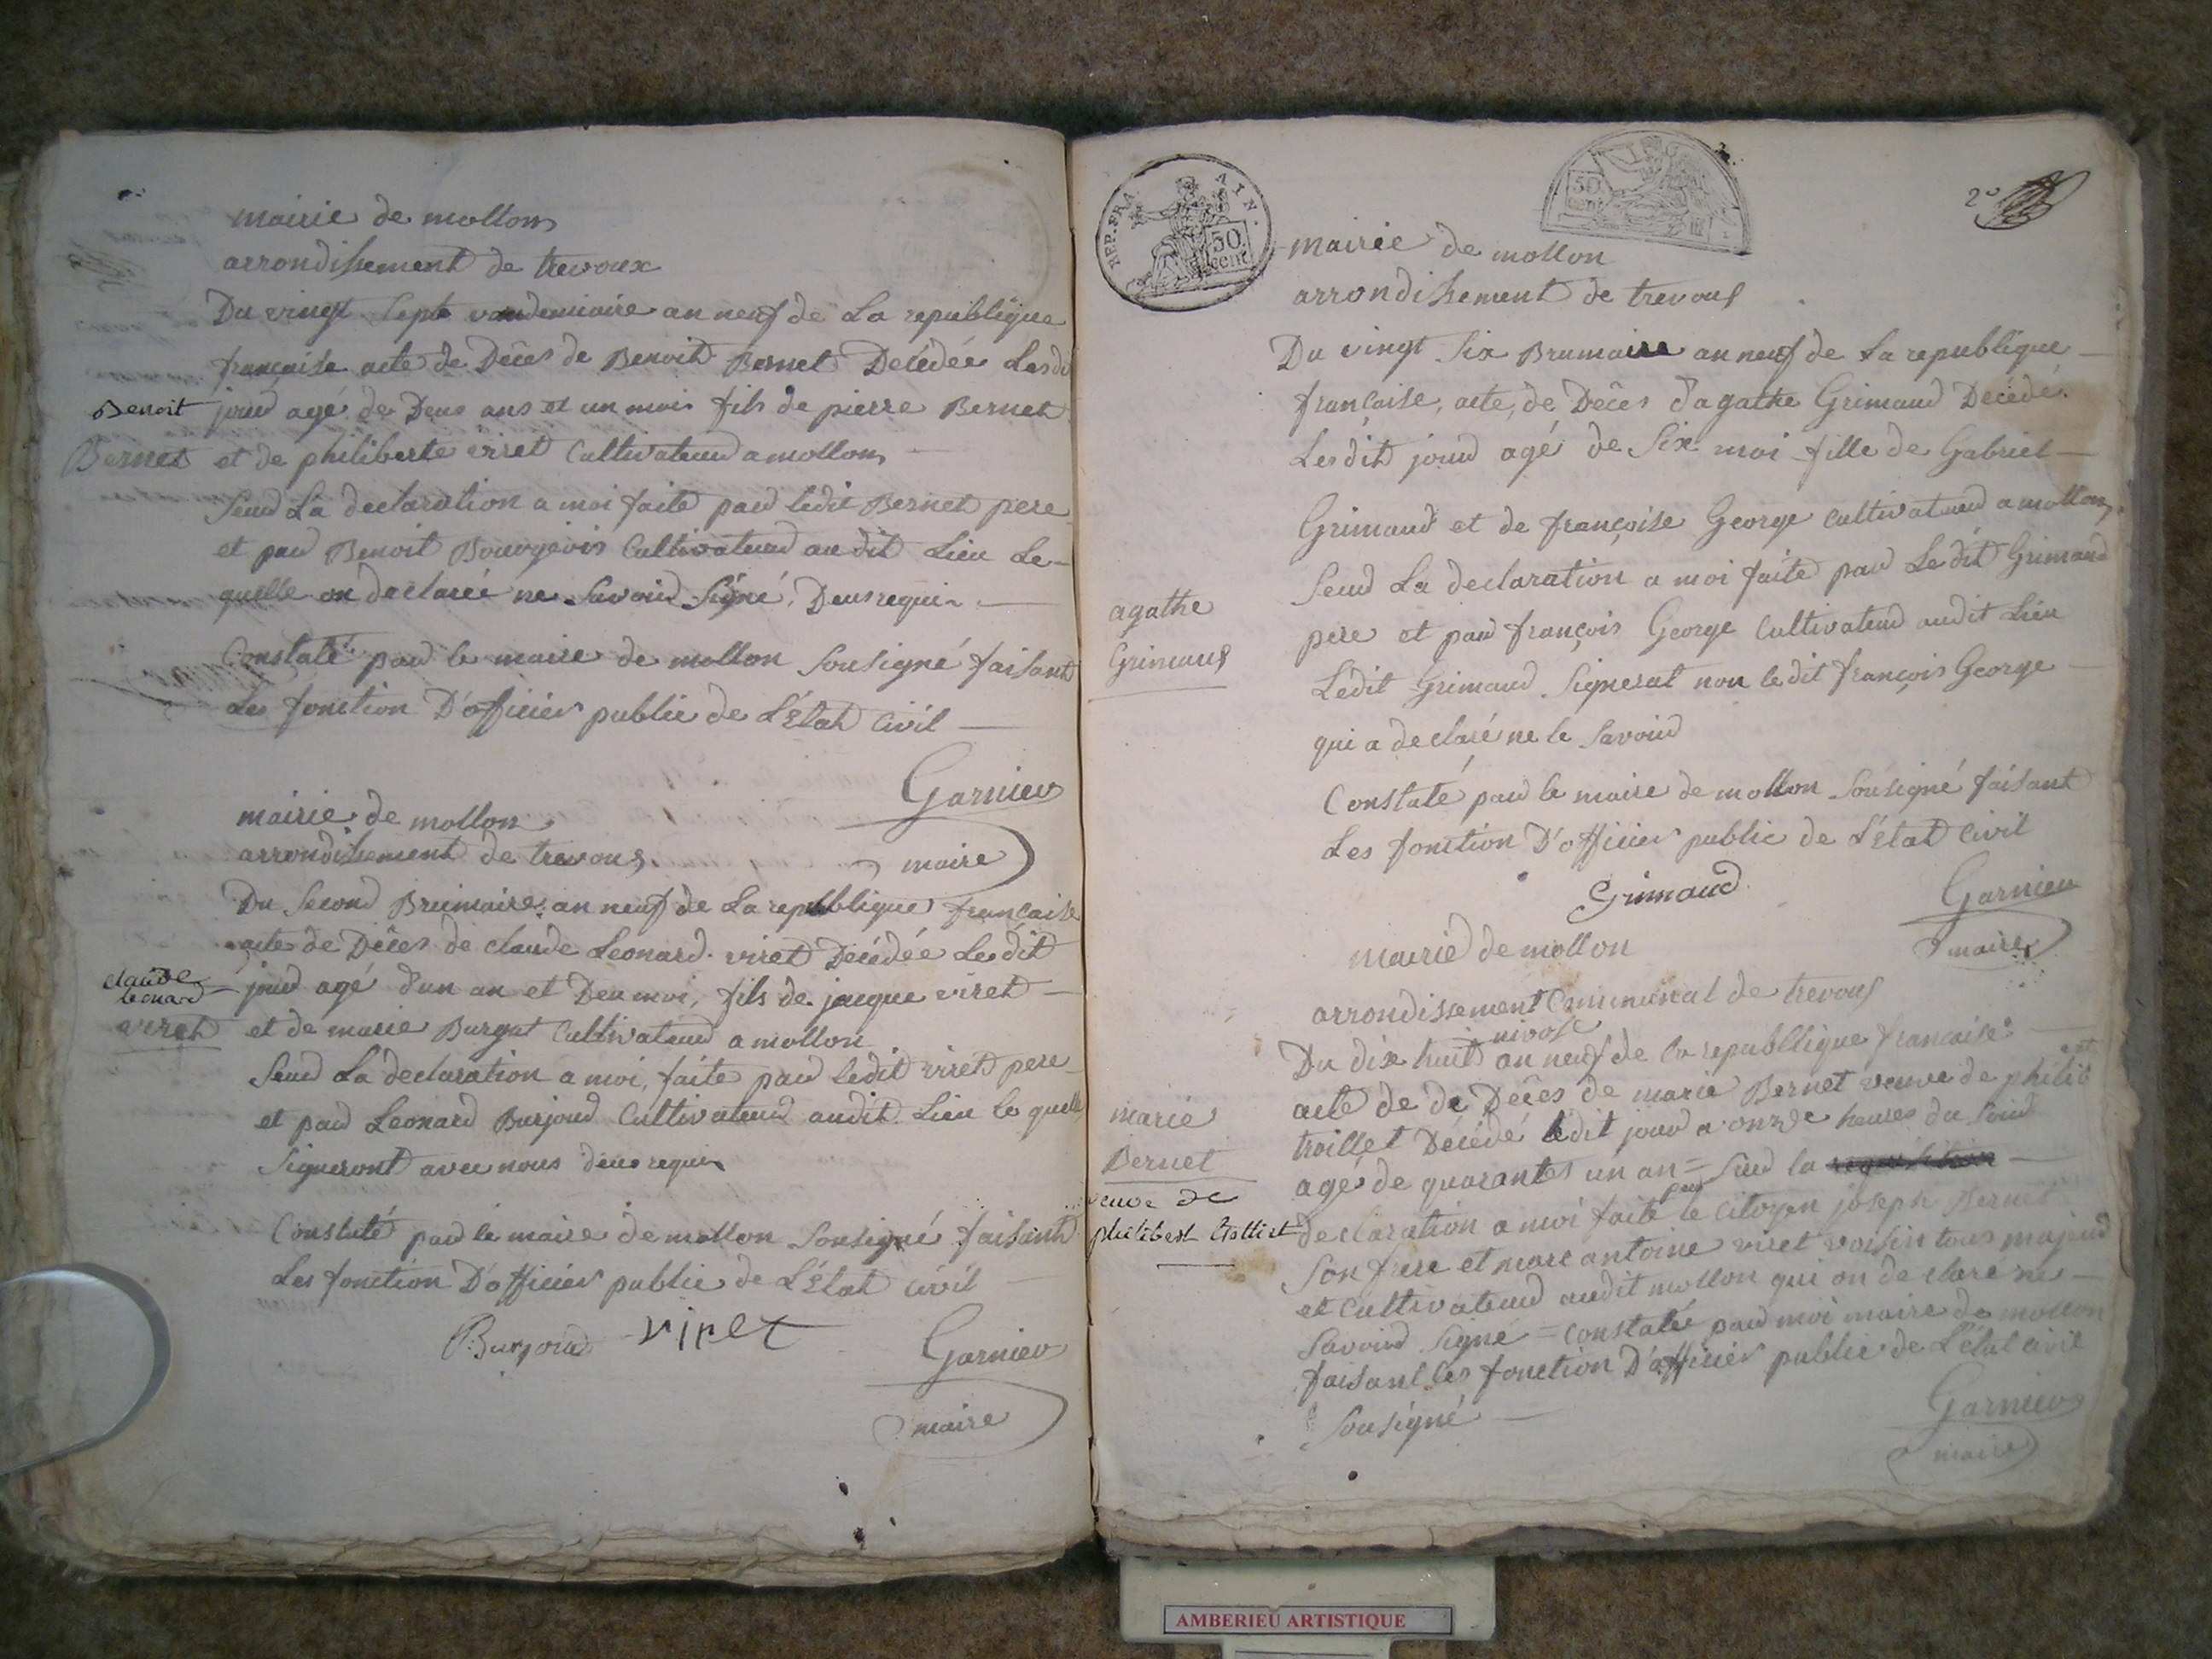 mairie de mollon
arrondissement de trevoux
Du vingt Sept vendemiaire an neuf de La republique
française acte de Décès de Benoit Bernet Decédée Lesdit
Benoit
Bernet
jourd agé de Deus ans et un mois fils de pierre Bernet
et de philiberte viret Cultivateurd a mollon
Seurd La declaration a moi faite pard ledit Bernet pere
et pard Benoit Bourgeois Cultivateurd au dit Lieu Le-
quelle on déclareé ne Savoird Signé. Deus requi
Constaté pard le maire de mollon Sousigné faisant
Les fonction D'officier public de L'Etat Civil
Garnier
maire
mairie de mollon
arrondissement de trevous
Du Second Brumaire an neuf de La republlique française
acte de Déces de claude Leonard viret Décédée Ledit
claude
leonard
viret
jourd agé d'un an et Deu moi, fils de jacque viret
et de marie Burgat Cultivateurd a mollon
Seurd La declaration a moi, faite pard ledit viret pere
et pard Leonard Burjoud Cultivateurd audit Lieu le quelle
Signeront avec nous deus requi
Constaté pard le maire de mollon Sousigné faisant
Les fonction D'officier public de L'Etat civil
Burjoud viret
Garnier
maire
REP. FRA. AIN.
50 cent
50 cent
2
mairie de mollon
arrondissement de trevous
Du vingt Six Brumaire an neuf de La republique
française, acte, de Décès d'agathe Grimaud Décédé
Lesdit jourd agé de Six moi fille de Gabriel
Grimaud et de françoise George Cultivateurd a mollon
agathe
Grimaus
Seurd La declaration a moi faite pard Ledit Grimaud
pere et pard françois George Cultivateurd audit Lieu
Ledit Grimaud Signerat non ledit françois George
qui a declaré ne le Savoird
Constaté pard le maire de mollon Sousigné faisant
Les fonction D'officier public de L'état Civil
Grimaud
Garnier
maire
mairie de mollon
arrondissement Communal de trevous
nivose
Du dix huit an neuf de la republlique francaise
acte de de Déces de marie Bernet veuve de philibert
marie
Bernet
veuve de
philibert
troillet Décédé ledit jourd a onze heures du soird
agé de quarantes un an = Surd la
declaration a moi faite pard le Citoyen joseph Bernet
Son frere et marc antoine viret voisin tous majeurd
et Cultivateurd audit mollon qui on declare ne
Savoird Signé = constatée pard moi maire de mollon
faisant les fonction D'officier public de L'état civil
Sousigné
Garnier
maire
AMBERIEU ARTISTIQUE